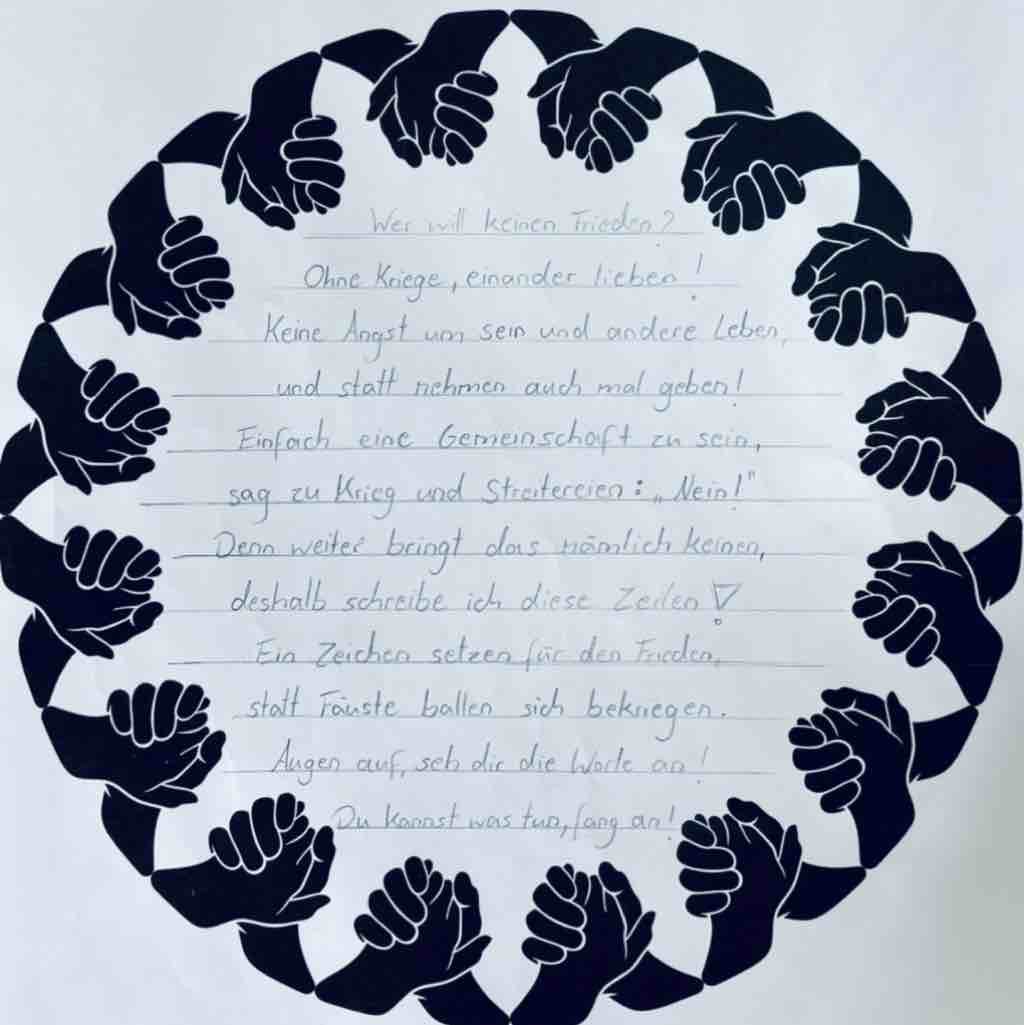 Wer will keinen Frieden?
Ohne Kriege, einander lieben!
Keine Angst um sein und andere Leben,
und statt nehmen auch mal geben!
Einfach eine Gemeinschaft zu sein,
sag zu Krieg und Streitereien: „Nein!"
Denn weiter bringt das nämlich keinen,
deshalb schreibe ich diese Zeilen!
Ein Zeichen setzen für den Frieden,
statt Fäuste ballen sich bekriegen.
Augen auf, seh dir die Worte an!
Du kannst was tun, fang an!